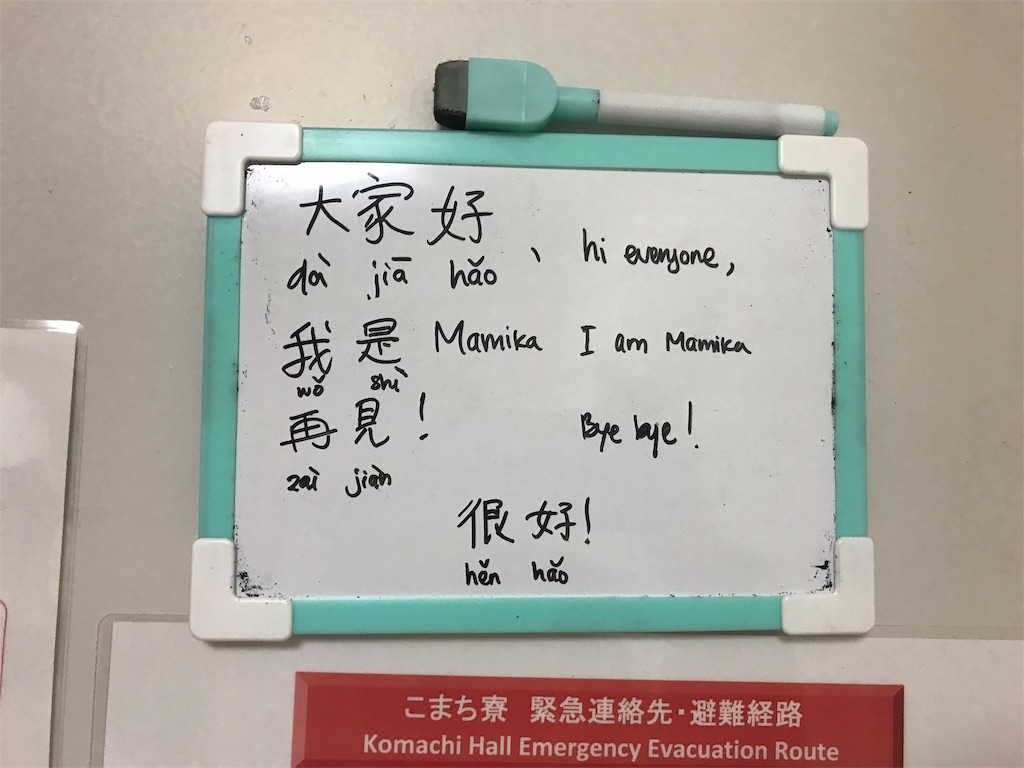 大家好、 hi everyone,
dà jiā hǎo
我是 Mamika I am Mamika
wǒ shì
再見! Bye bye!
zài jiàn
很好!
hěn hǎo
こまち寮 緊急連絡先・避難経路
Komachi Hall Emergency Evacuation Route